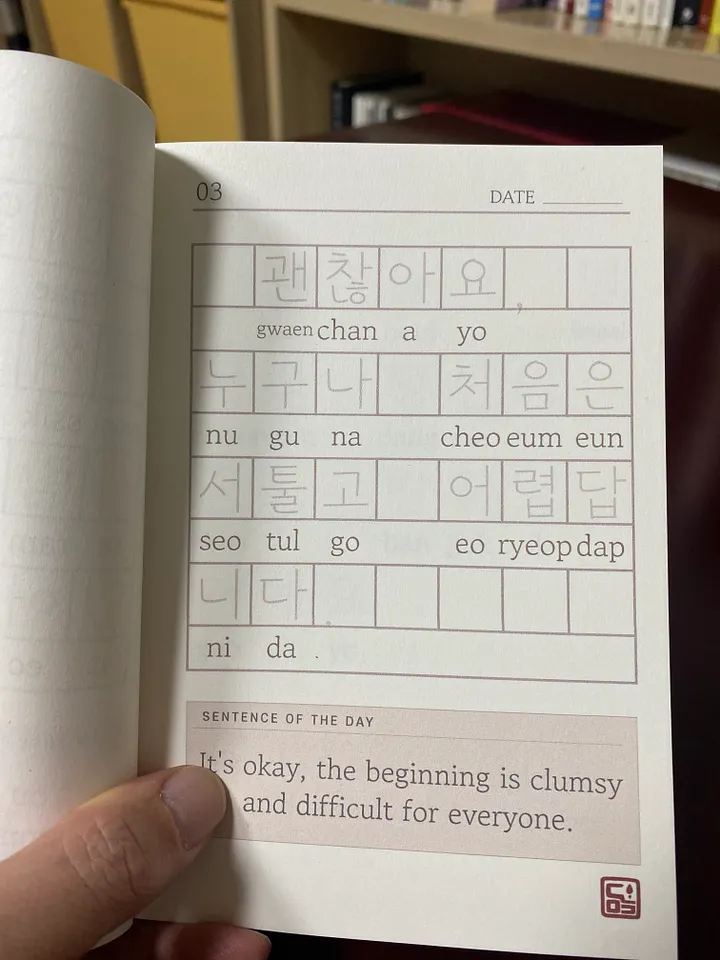 03 DATE
괜찮아요,
gwaen chan a yo
누구나 처음은
nu gu na cheo eum eun
서툴고 어렵답
seo tul go eo ryeop dap
니다.
ni da .
SENTENCE OF THE DAY
It's okay, the beginning is clumsy
and difficult for everyone.